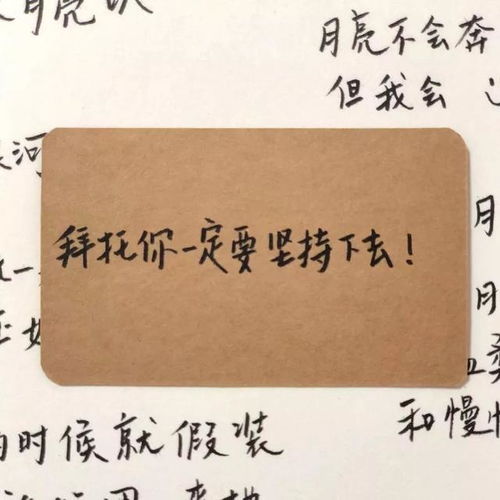 月亮
月亮不会奔
但我会
河
拜托你一定要坚持下去！
一
月
月
和慢
时候就假装